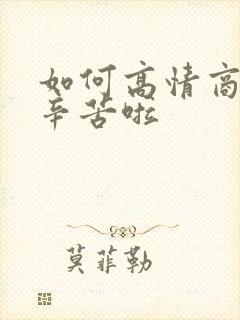 如何高情商
辛苦啦
莫菲勒